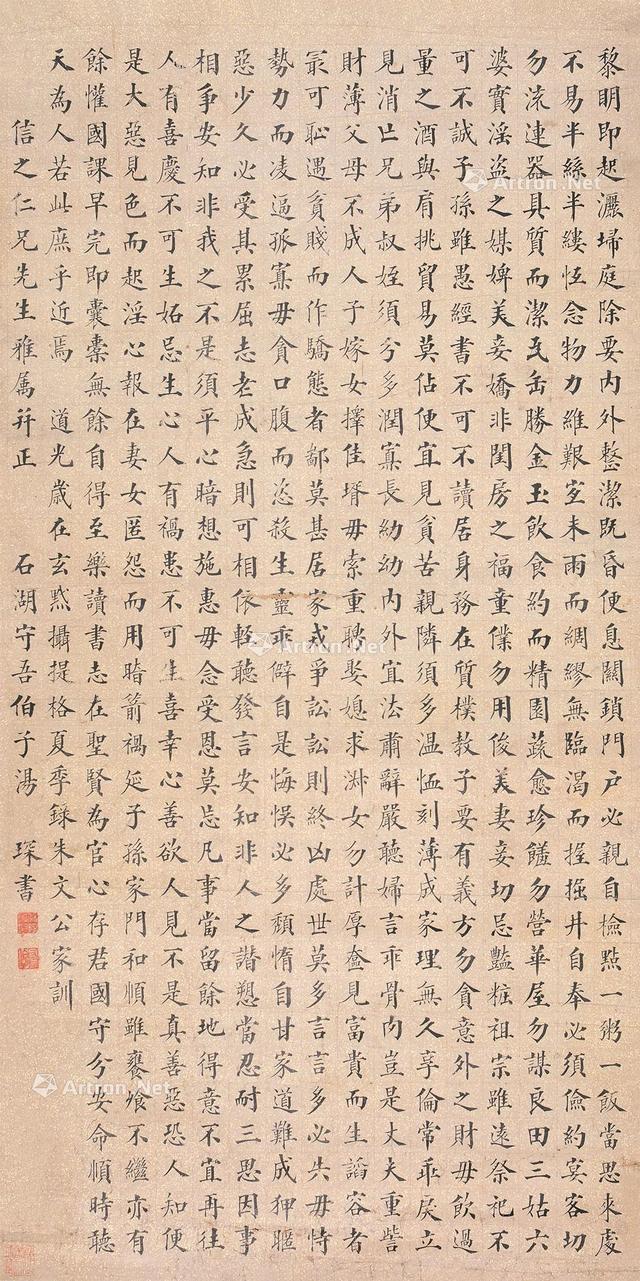 黎明即起灑埽庭除要內外整潔既昏便息關鎖門戶必親自檢點一粥一飯當思來處
不易半絲半縷恆念物力維艱宜未雨而綢繆無臨渴而掘井自奉必須儉約宴客切
勿流連器具質而潔瓦缶勝金玉飲食約而精園蔬愈珍饈勿營華屋勿謀良田三姑六
婆實淫盜之媒婢美妾嬌非閨房之福童僕勿用俊美妻妾切忌豔粧祖宗雖遠祭祀不
可不誠子孫雖愚經書不可不讀居身務在質樸教子要有義方勿貪意外之財毋飲過
量之酒與肩挑貿易莫佔便宜見貧苦親隣須多溫恤刻薄成家理無久享倫常乖戾立
見消亡兄弟叔姪須分多潤寡長幼幼內外宜法肅辭嚴聽婦言乖骨肉豈是丈夫重訾
財薄父母不成人子嫁女擇佳壻毋索重聘娶媳求淑女勿計厚奩見富貴而生諂容者
最可恥遇貧賤而作驕態者鄙莫甚居家戒爭訟訟則終凶處世莫多言言多必失毋恃
勢力而凌逼孤寡毋貪口腹而恣殺生靈乖僻自是悔悞必多頹惰自甘家道難成狎暱
惡少久必受其累屈志老成急則可相依輕聽發言安知非人之譖愬當忍耐三思因事
相爭安知非我之不是須平心暗想施惠毋念受恩莫忘凡事當留餘地得意不宜再往
人有喜慶不可生妬忌生心人有禍患不可生喜幸心善欲人見不是真善惡恐人知便
是大惡見色而起淫心報在妻女匿怨而用暗箭禍延子孫家門和順雖饔飧不繼亦有
餘懽國課早完即囊橐無餘自得至樂讀書志在聖賢為官心存君國守分安命順時聽
天為人若此庶乎近焉 道光歲在玄黓攝提格夏季錄朱文公家訓
信之仁兄先生雅屬并正 石湖守吾伯子湯 琛書
Artron.Net
Artron.Net
Artron.Net